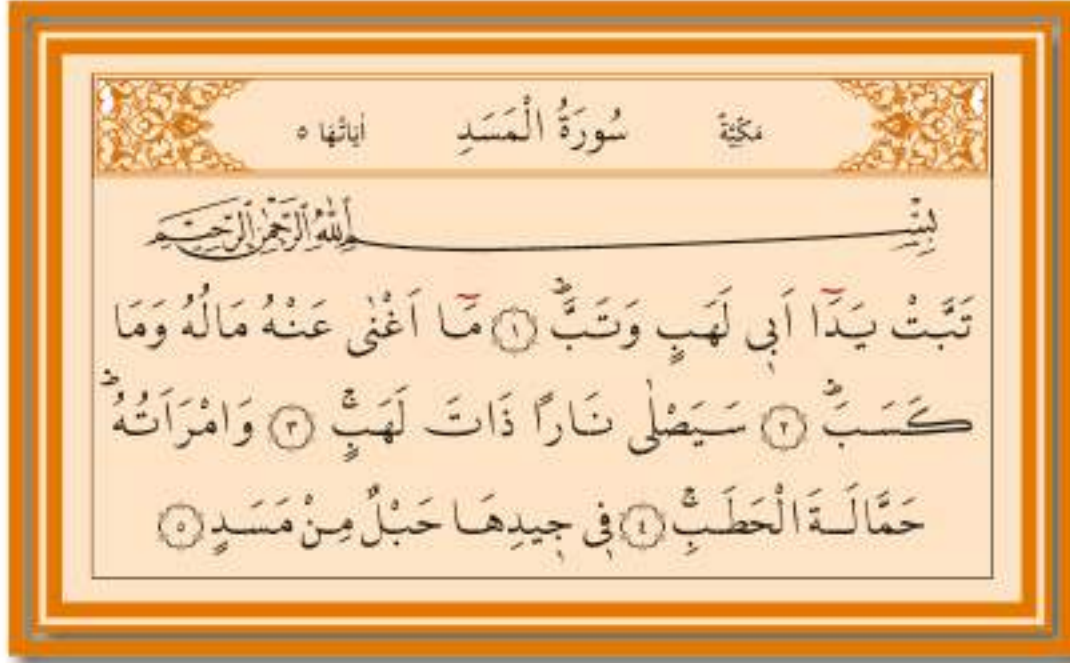 مَكِّيَّةٌ سُورَةُ الْمَسَدِ اٰيَاتُهَا ٥
بِسْمِ اللّٰهِ الرَّحْمٰنِ الرَّحِيمِ
تَبَّتْ يَدَٓا اَبٖي لَهَبٍ وَتَبَّؕ ﴿١﴾ مَٓا اَغْنٰى عَنْهُ مَالُهُ وَمَا
كَسَبَؕ ﴿٢﴾ سَيَصْلٰى نَارًا ذَاتَ لَهَبٍۚ ﴿٣﴾ وَامْرَاَتُهُؕ
حَمَّالَةَ الْحَطَبِۚ ﴿٤﴾ فٖي جٖيدِهَا حَبْلٌ مِنْ مَسَدٍ ﴿٥﴾